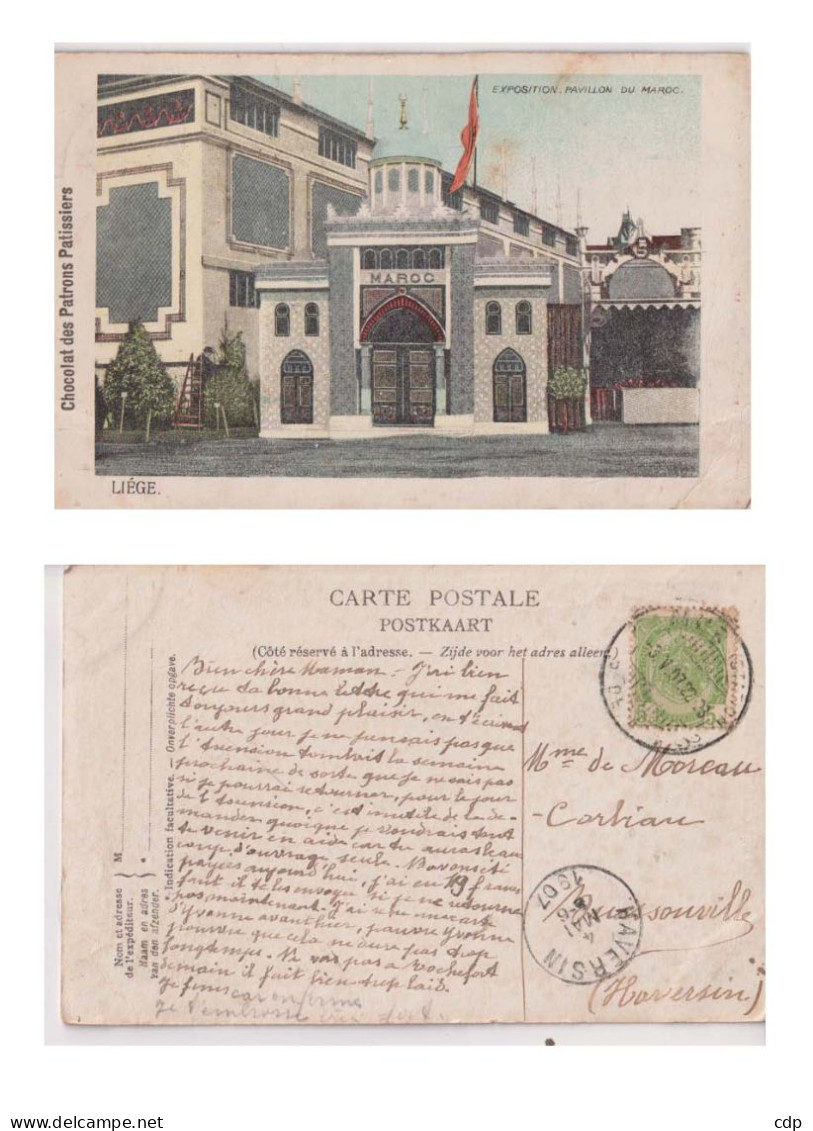 EXPOSITION. PAVILLON DU MAROC.
MAROC
Chocolat des Patrons Patissiers
LIÉGE.
CARTE POSTALE
POSTKAART
(Côté réservé à l'adresse. — Zijde voor het adres alleen.)
Bien chère Maman - J'ai bien
reçue ta bonne lettre qui me fait
toujours grand plaisir, en t'écrivant
l'autre jour je ne pensais pas que
l'Asension tombait la semaine
prochaine de sorte que je ne sais pas
si je pourrai retourner, pour le jour
de l'Asension, c'est inutile de le de-
mander quoique je voudrais tant
te venir en aide car tu auras beau
coup d'ouvrage seule.
payées aujourd'hui, j'ai eu 19 francs
faut il te les envoyer si je ne retourne
pas maintenant. J'ai reçu une carte
d'Yvonne avant hier, pauvre Yvonne
pourvu que cela ne dure pas trop
longtemps. Ne vas pas a Rochefort
demain il fait bien trop laid.
Je finis car on ferme
Je t'embrasse bien fort.
Mme de Moreau
- Corbiau
(Haversin)
HAVERSIN
4
MAI
1907
Indication facultative. Onverplichte opgave.
M
Nom et adresse
de l'expéditeur.
Naam en adres
van den afzender.
delcampe.net
cdp